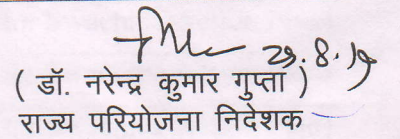 29.8.19
( डॉ. नरेन्द्र कुमार गुप्ता )
राज्य परियोजना निदेशक